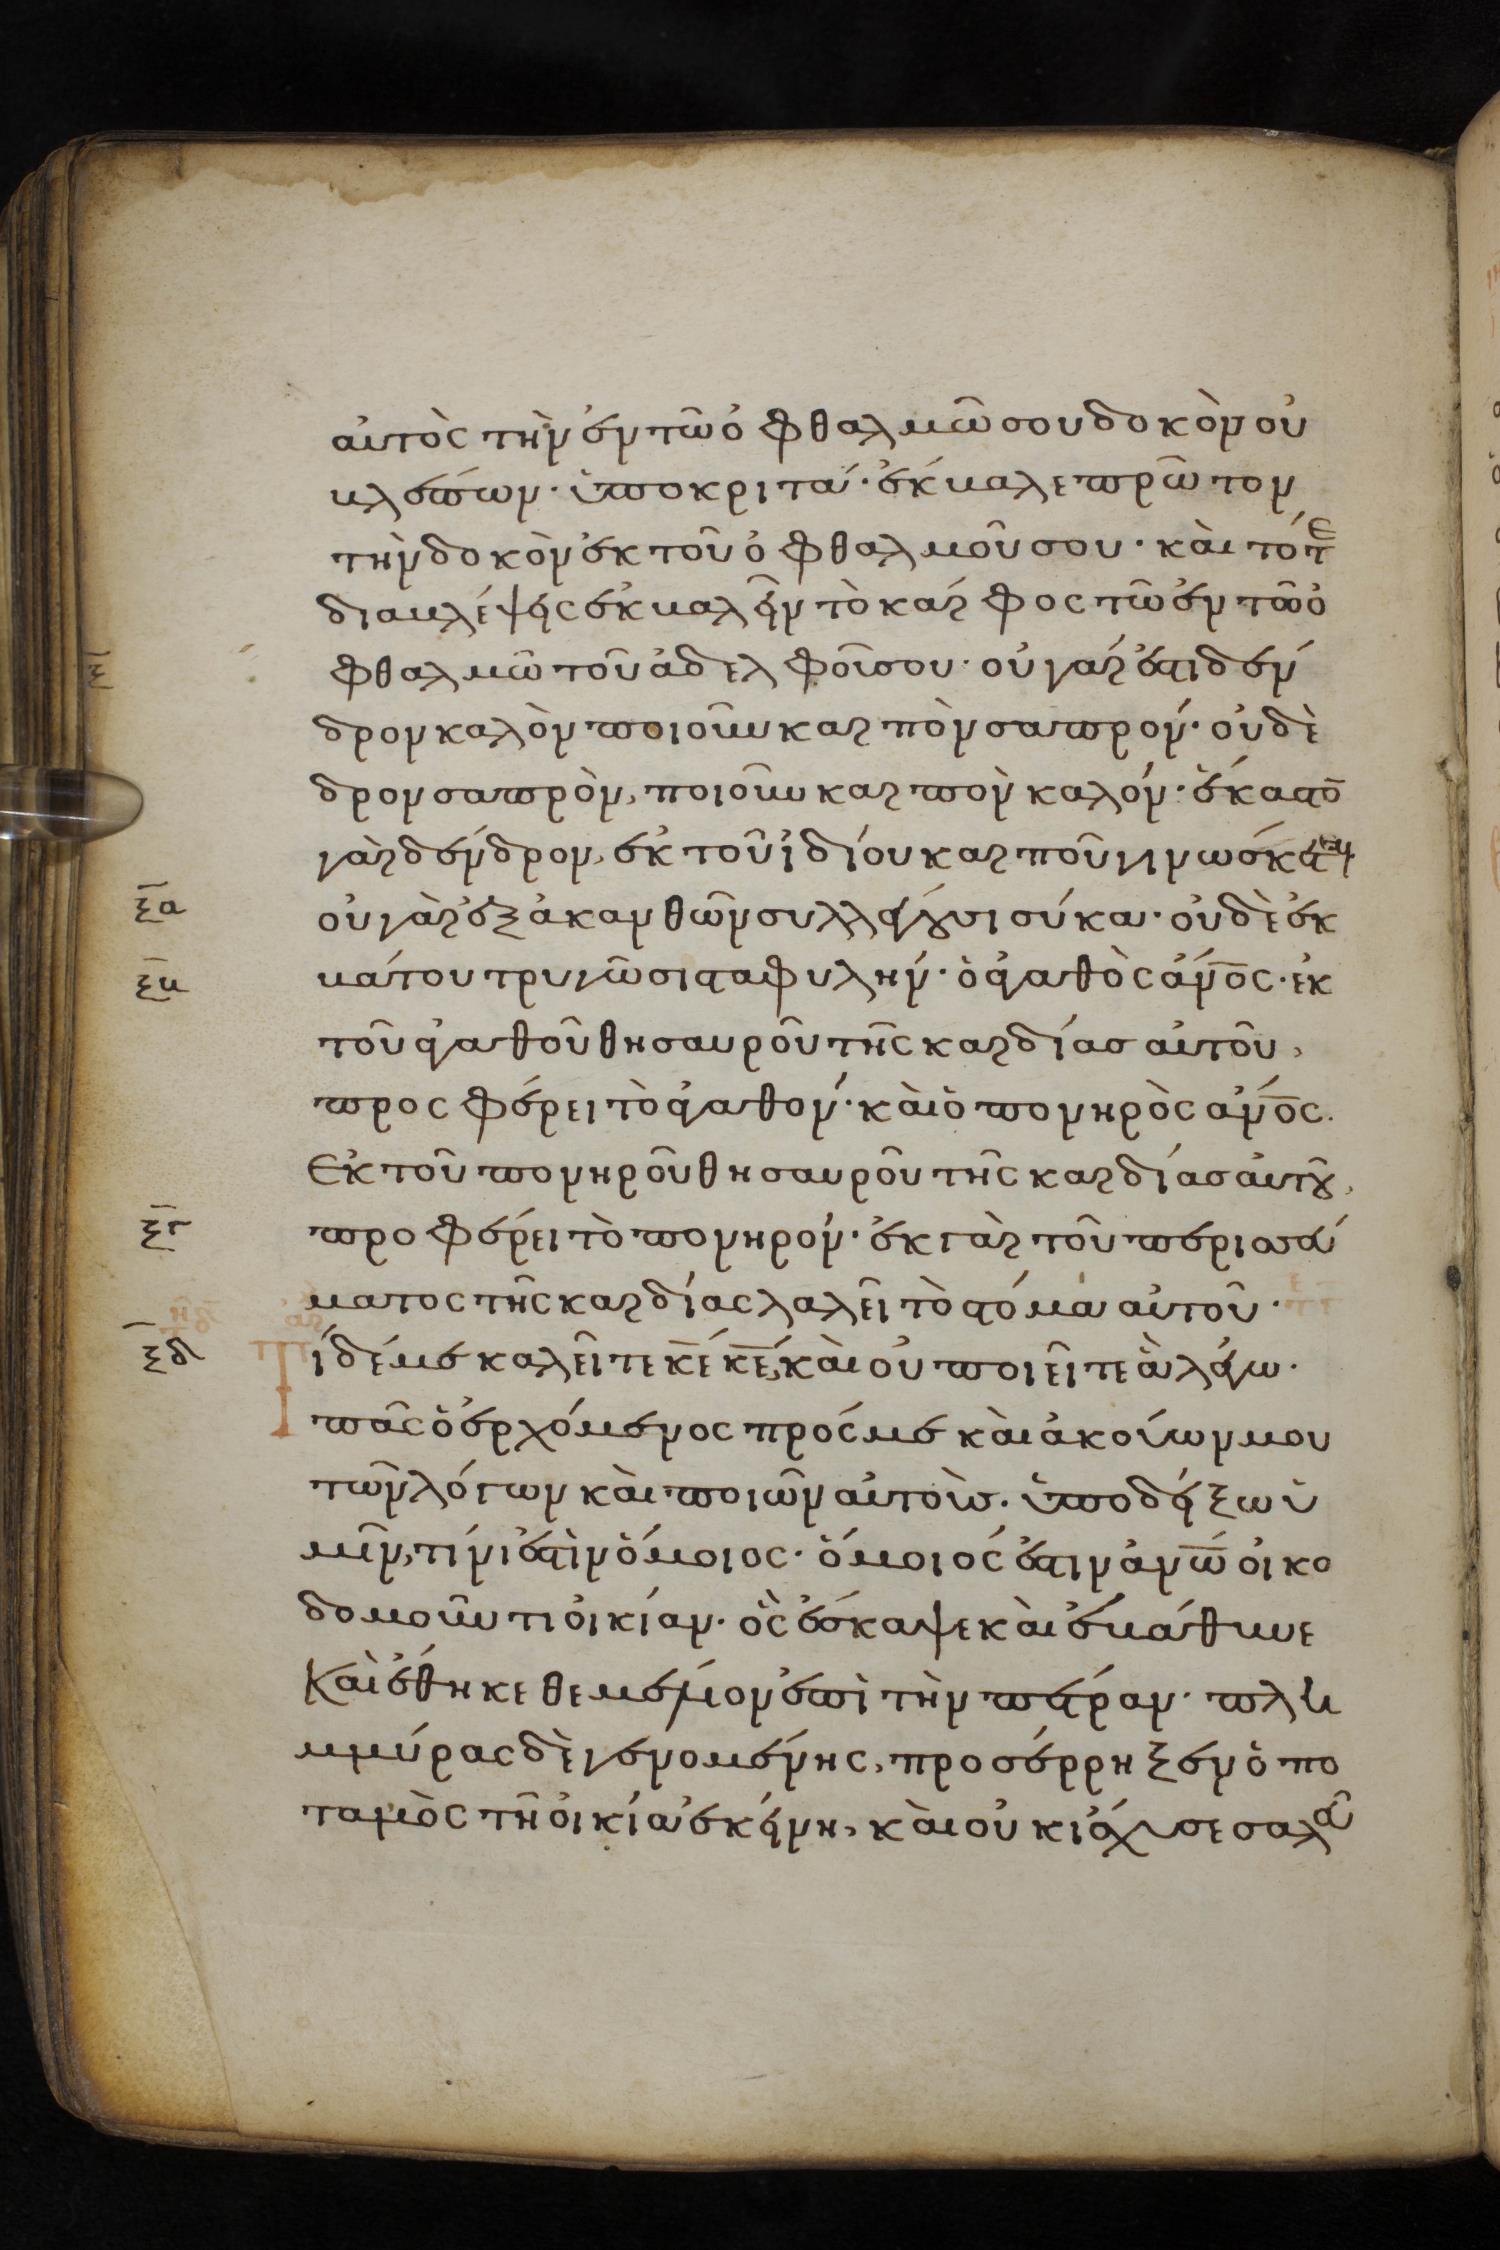 αὐτὸς τὴν ἐν τῶ ὀφθαλμῶ σου δοκὸν οὐ
βλέπων· ὑποκριτά· ἔκβαλε πρῶτον
τὴν δοκὸν ἐκ τοῦ ὀφθαλμοῦ σου· καὶ τότε
διαβλέψεις ἐκβαλεῖν τὸ κάρφος τῶ ἐν τῶ ὀ
φθαλμῶ τοῦ ἀδελφοῦ σου· οὐ γάρ ἐστι δέν
δρον καλὸν ποιοῦν καρπὸν σαπρόν· οὐδὲ
δρον σαπρὸν, ποιοῦν καρπὸν καλόν· ἕκαστο̄
γὰρ δένδρον, ἐκ τοῦ ἰδίου καρποῦ γινώσκεται
ξ̄α οὐ γὰρ ἐξ ἀκανθῶν συλλέγουσι σύκα· οὐδὲ ἐκ
ξ̄β βάτου τρυγῶσι σταφυλήν· ὁ ἀγαθὸς ἄν̄ο̄ς· ἐκ
τοῦ ἀγαθοῦ θησαυροῦ τῆς καρδίας αὐτοῦ,
προσφέρει τὸ ἀγαθόν· καὶ ὁ πονηρὸς ἄν̄ο̄ς.
Ἐκ τοῦ πονηροῦ θησαυροῦ τῆς καρδίας αὐτοῦ,
ξ̄γ προφέρει τὸ πονηρόν· ἐκ γὰρ τοῦ περισσεύ
ματος τῆς καρδίας λαλεῖ τὸ στόμα αὐτοῦ·
ξ̄δ Τί δέ με καλεῖτε κ̄ε κ̄ε, καὶ οὐ ποιεῖτε ἃ λέγω·
πᾶς ὁ ἐρχόμενος πρός με καὶ ἀκούων μου
τῶν λόγων καὶ ποιῶν αὐτοὺς· ὑποδείξω ὑ
μῖν, τίνι ἐστὶν ὅμοιος· ὅμοιός ἐστιν ἀν̄ω̄ οἰκο
δομοῦντι οἰκίαν· ὃς ἔσκαψε καὶ ἐβάθυνε
Καὶ ἔθηκε θεμέλιον ἐπὶ τὴν πέτραν· πλη
μμύρας δὲ γενομένης, προσέρρηξεν ὁ πο
ταμὸς τῆ οἰκία ἐκείνη, καὶ οὐκ ἴσχυσε σαλεῦ